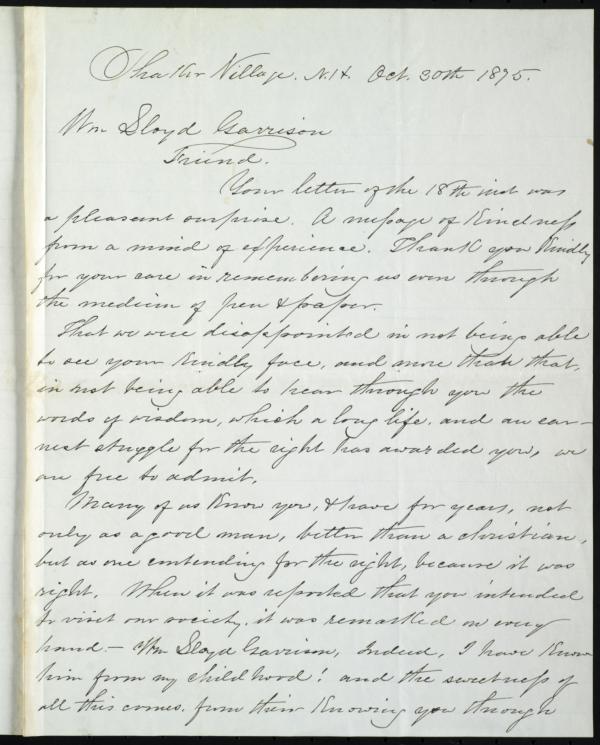 Shaker Village. N.H. Oct. 30th 1875.
Wm Lloyd Garrison
Friend.
Your letter of the 18th inst was
a pleasant surprise. A message of kindness
from a mind of experience. Thank you kindly
for your care in remembering us even through
the medium of pen & paper.
That we were disappointed in not being able
to see your kindly face, and more than that,
in not being able to hear through you the
words of wisdom, which a long life. and an ear-
nest struggle for the right has awarded you, we
are free to admit.
Many of us know you, & have for years, not
only as a good man, better than a christian,
but as one contending for the right, because it was
right. When it was reported that you intended
to visit our society, it was remarked on every
hand - Wm Lloyd Garrison, Indeed, I have known
him from my childhood! and the sweetness of
all this comes. from their knowing you through